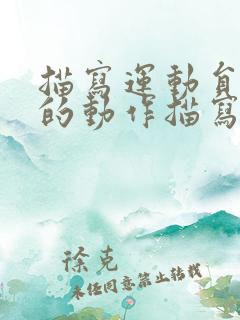 描寫運動員
的動作描寫
徐克
未經同意禁止轉載